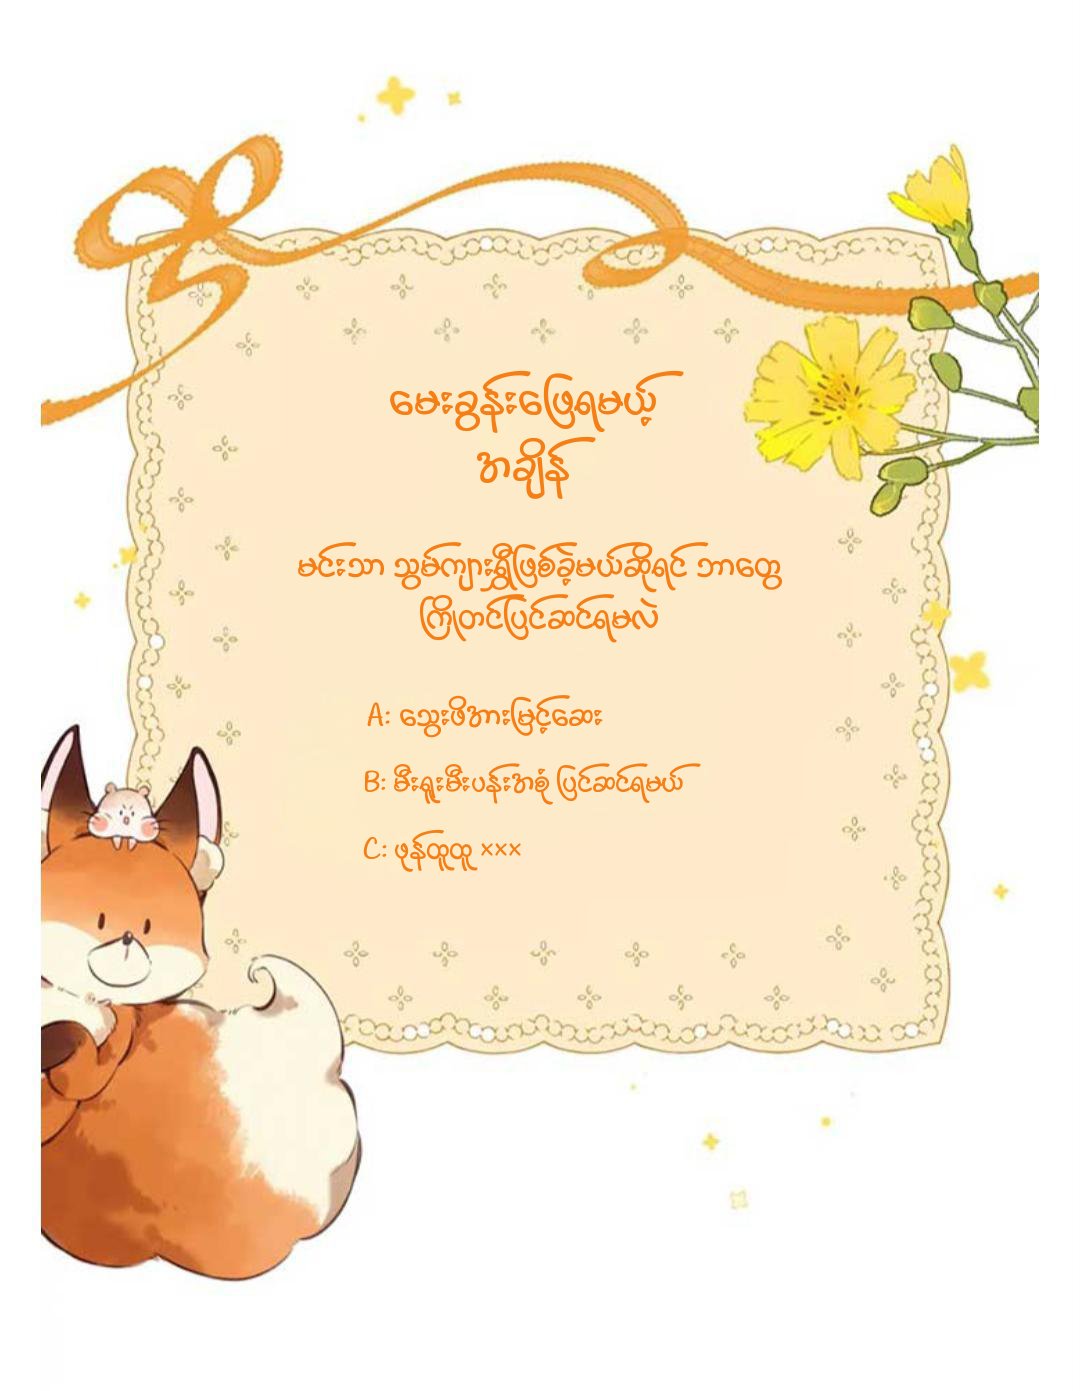 မေးခွန်းဖြေရမယ့်
အချိန်
မင်းသာ သွမ်ကျားရွှီဖြစ်ခဲ့မယ်ဆိုရင် ဘာတွေ
ကြိုတင်ပြင်ဆင်ရမလဲ
A: သွေးဖိအားမြင့်ဆေး
B: မီးရှူးမီးပန်းအစုံ ပြင်ဆင်ရမယ်
C: ဖုန်ထူထူ xxx